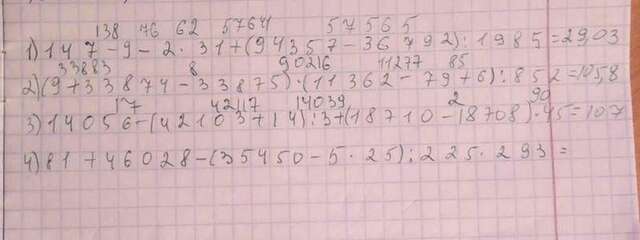 138 76 62 5764 57565
1) 147-9-2·31+(94357-36792):1985=29,03
33883 8 90216 11277 85
2)(9+33874-33875)·(11362-79+6):852=105,8
17 42117 14039 2 90
3) 14056-(42103+14):3+(18710-18708)·45=107
4) 81+46028-(35450-5·25):225·293=